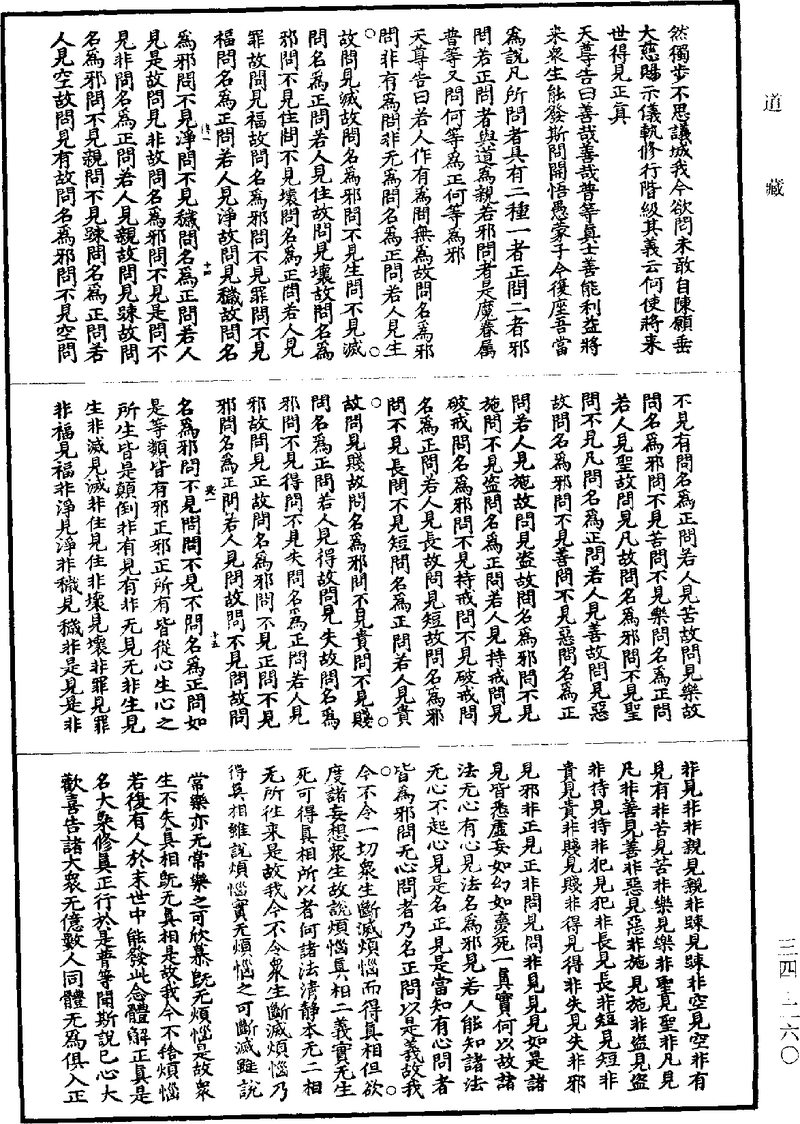 道藏
然獨步不思議城我今欲問未敢自陳願垂
大慈賜示儀軌修行階級其義云何使將來
世得見正真
天尊告曰善哉善哉普等真士善能利益將
來衆生能發斯問開悟愚蒙子今復座吾當
為說凡所問者具有二種一者正問二者邪
問若正問者與道為親若邪問者是魔眷屬
普等又問何等為正何等為邪
天尊告曰若人作有為問無為故問名為邪
問非有為問非无為問名為正問若人見生
故問見滅故問名為邪問不見生問不見滅
問名為正問若人見住故問見壞故問名為
邪問不見住問不見壞問名為正問若人見
罪故問見福故問名為邪問不見罪問不見
福問名為正問若人見淨故問見穢故問名
為邪問不見淨問不見穢問名為正問若人
見是故問見非故問名為邪問不見是問不
見非問名為正問若人見親故問見踈故問
名為邪問不見親問不見踈問名為正問若
人見空故問見有故問名為邪問不見空問
十四
不見有問名為正問若人見苦故問見樂故
問名為邪問不見苦問不見樂問名為正問
若人見聖故問見凡故問名為邪問不見聖
問不見凡問名為正問若人見善故問見惡
故問名為邪問不見善問不見惡問名為正
問若人見施故問見盜故問名為邪問不見
施問不見盜問名為正問若人見持戒問見
破戒問名為邪問不見持戒問不見破戒問
名為正問若人見長故問見短故問名為邪
問不見長問不見短問名為正問若人見貴
故問見賤故問名為邪問不見貴問不見賤
問名為正問若人見得故問見失故問名為
邪問不見得問不見失問名為正問若人見
邪故問見正故問名為邪問不見正問不見
邪問名為正問若人見問故問不見問故問
十五
名為邪問不見問問不見不問名為正問如
是等類皆有邪正邪正所有皆從心生心之
所生皆是顛倒非有見有非无見无非生見
生非滅見滅非住見住非壞見壞非罪見罪
非福見福非淨見淨非穢見穢非是見是非
非見非非親見親非踈見踈非空見空非有
見有非苦見苦非樂見樂非聖見聖非凡見
凡非善見善非惡見惡非施見施非盜見盜
非持見持非犯見犯非長見長非短見短非
貴見貴非賤見賤非得見得非失見失非邪
見邪非正見正非問見問非見見見如是諸
見皆悉虛妄如幻如夢死一真實何以故諸
法无心有心見法名為邪見若人能知諸法
无心不起心見是名正見是當知有心問者
皆為邪問无心問者乃名正問以是義故我
今不令一切衆生斷滅煩惱而得真相但欲
度諸妄想衆生故說煩惱真相二義實无生
死可得真相所以者何諸法清靜本无二相
无所往来是故我今不令衆生斷滅煩惱乃
得真相雖說煩惱實无煩惱之可斷滅雖說
常樂亦无常樂之可欣慕既无煩惱是故衆
生不失真相既无真相是故我今不捨煩惱
若復有人於末世中能發此念體解正真是
名大乘修真正行於是普等聞斯說已心大
歡喜告諸大衆无億數人同體无為俱入正
三四・二六〇